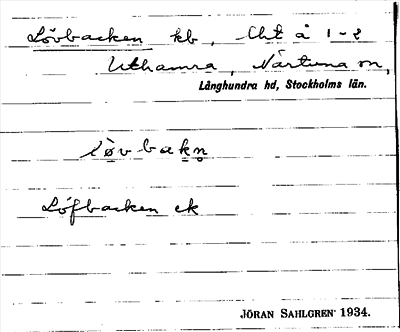 Lövbacken kb, Cht å 1-2
Uthamra, Närtuna sn,
Långhundra hd, Stockholms län.
lø̀vbakn̥
Löfbacken ek
JÖRAN SAHLGREN 1934.